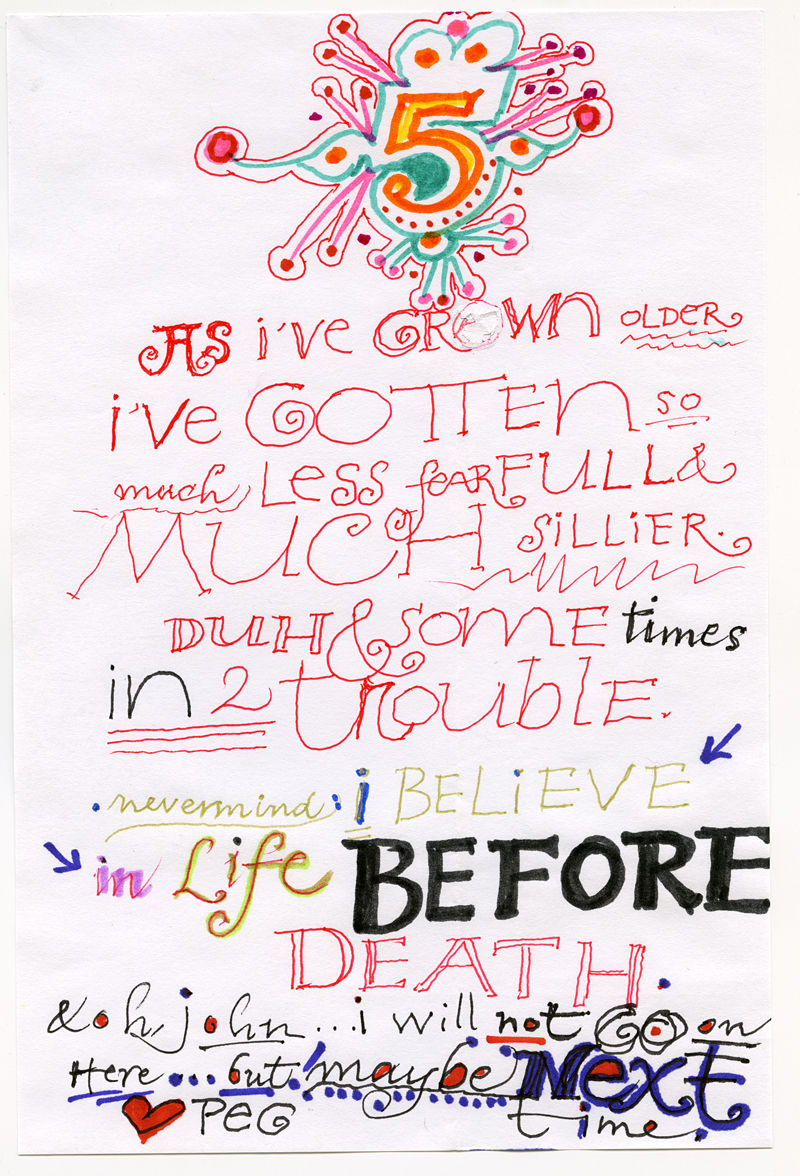 5
As i've GROWN OLDER
i've GOTTEN so
much Less feARFULL &
MUCH SiLLiER.
DUH & somE times
in 2 troublE.
nevermind: i BELiEVE
in Life BEFORE
DEATH.
& oh, john...i will not GO on
Here...but! maybe NExT
PEG time.